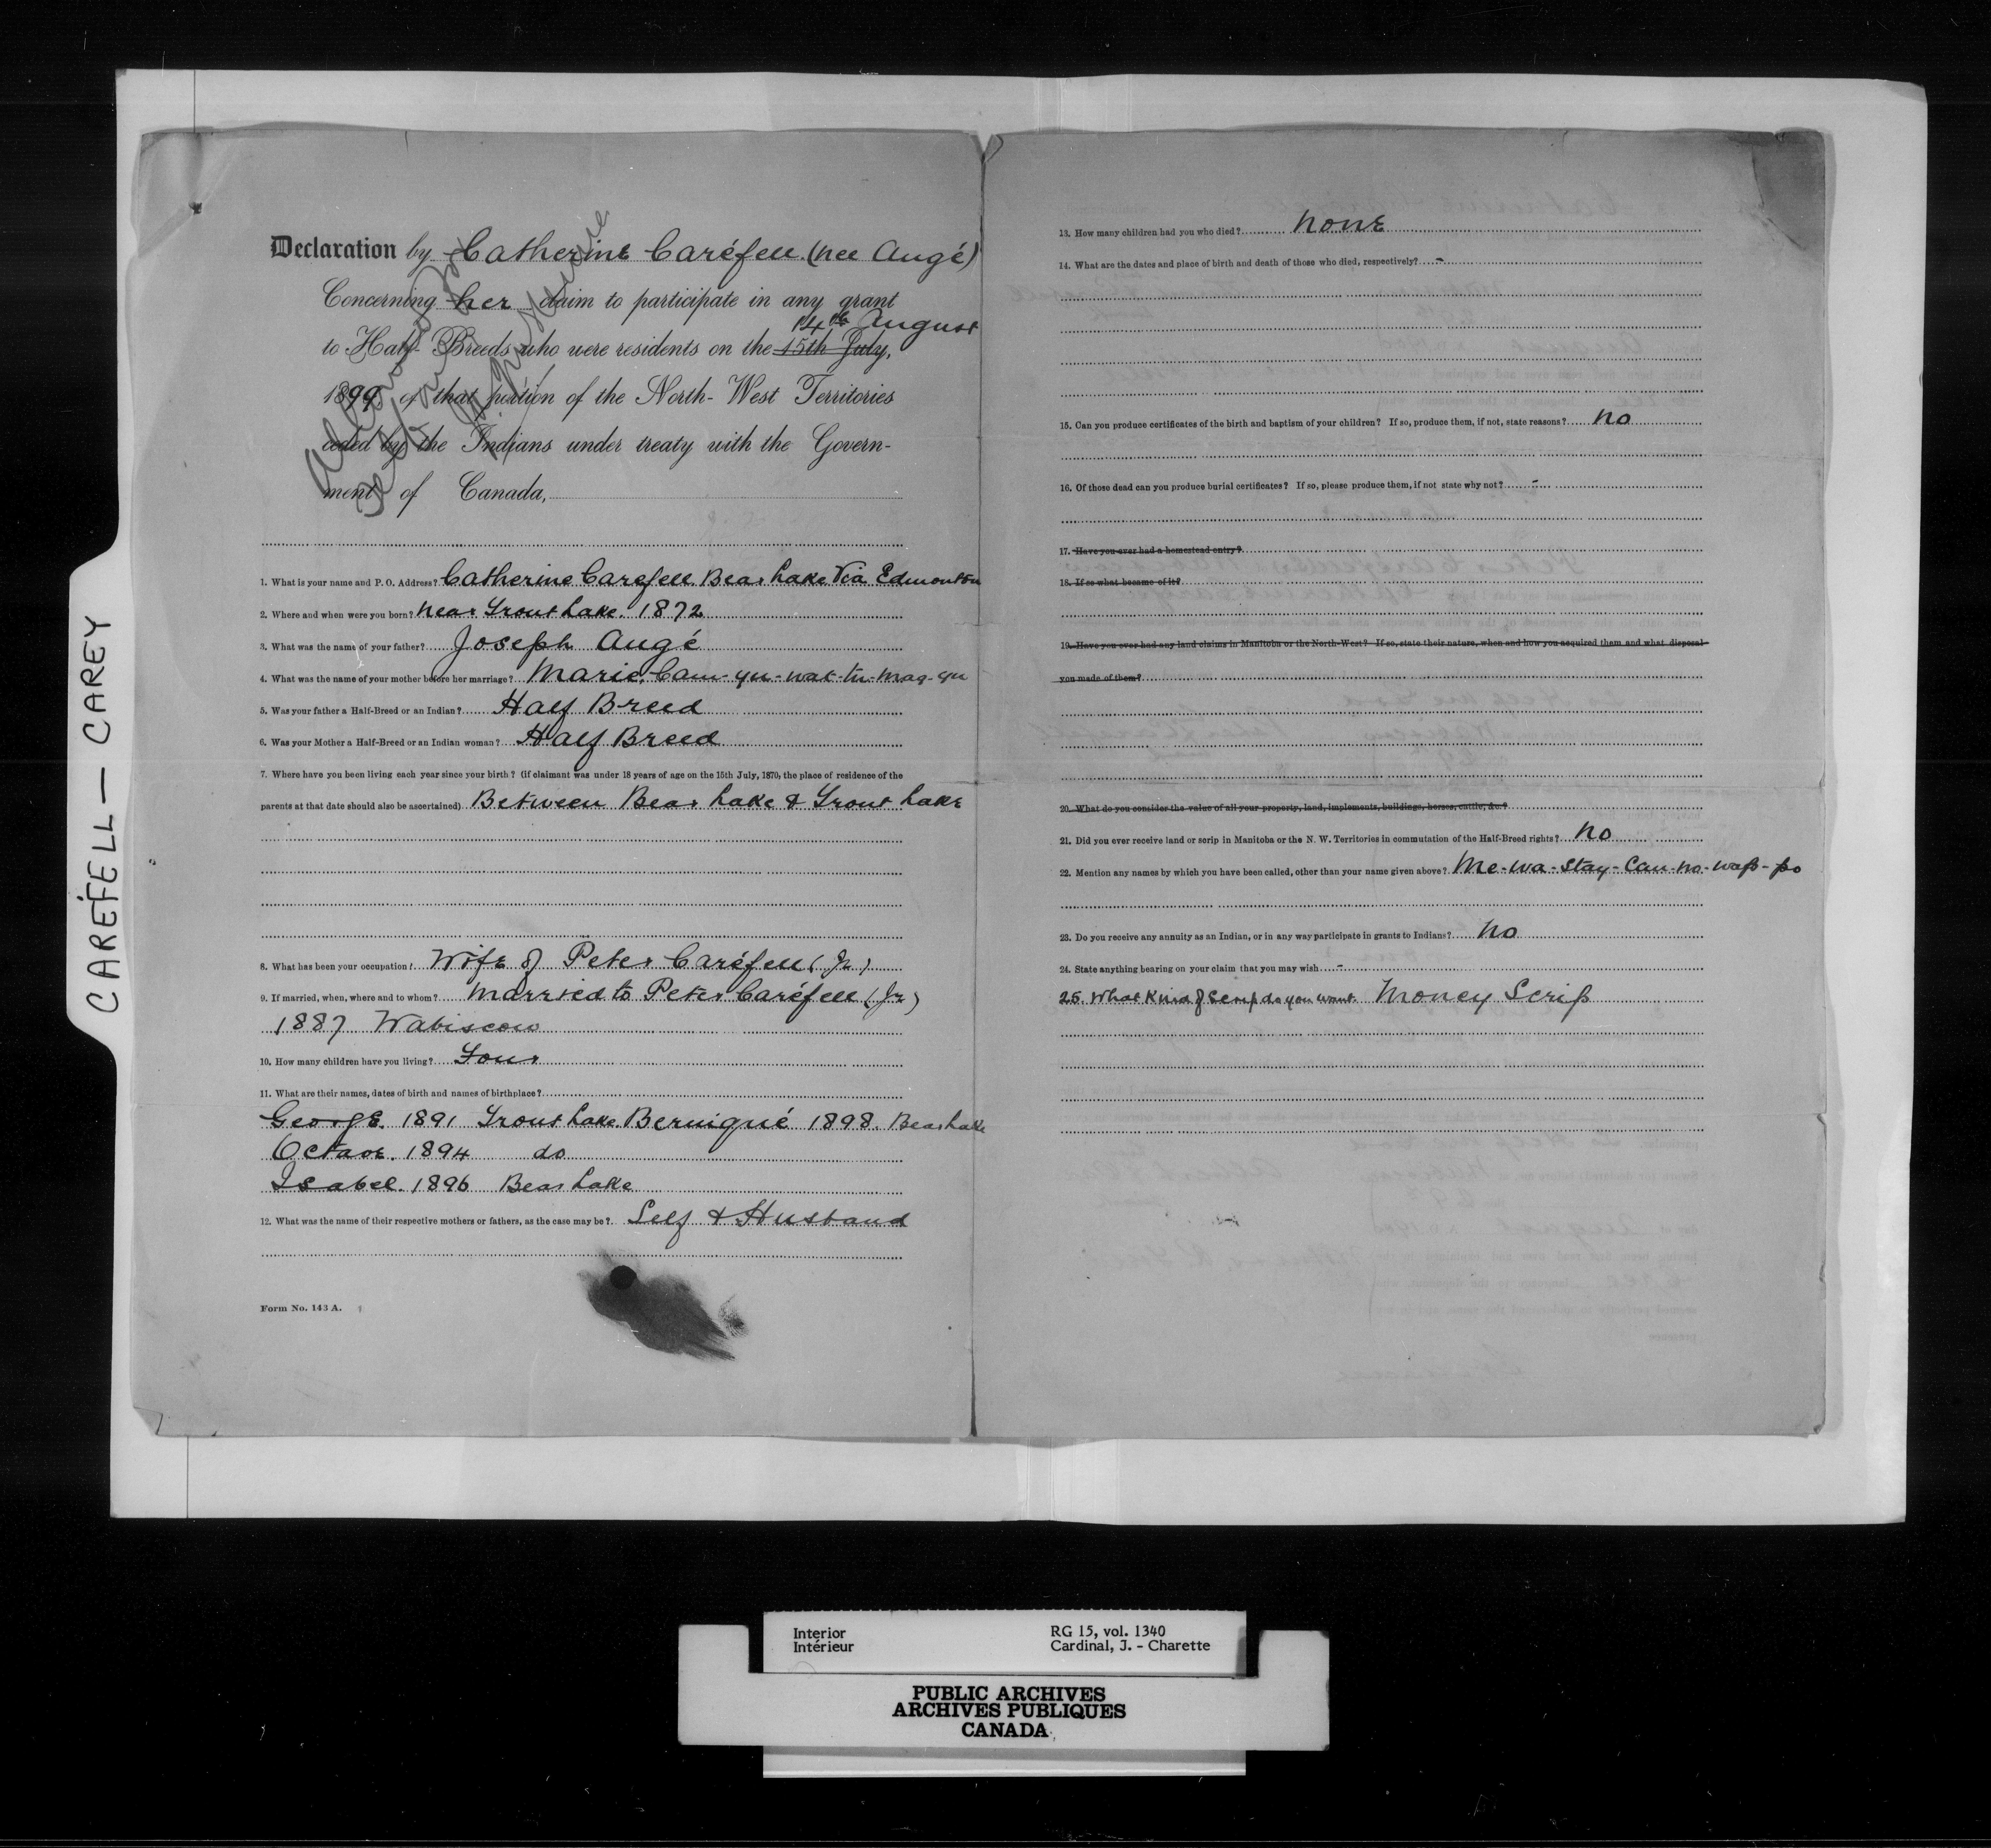 CAREFELL — CAREY
Declaration by Catherine Caréfell (nee Augé)
Concerning her claim to participate in any grant
14th August
to Half-Breeds who were residents on the 15th July,
1899, of that portion of the North-West Territories
ceded by the Indians under treaty with the Govern-
ment of Canada,
1. What is your name and P. O. Address? Catherine Carefell Bear Lake Via Edmonton
2. Where and when were you born? Near Trout Lake. 1872
3. What was the name of your father? Joseph Augé
4. What was the name of your mother before her marriage? Marie Cam-qu-wat-tu-mag-qu
5. Was your father a Half-Breed or an Indian? Half Breed
6. Was your Mother a Half-Breed or an Indian woman? Half Breed
7. Where have you been living each year since your birth? (if claimant was under 18 years of age on the 15th July, 1870, the place of residence of the
parents at that date should also be ascertained) Between Bear Lake & Trout Lake
8. What has been your occupation? Wife of Peter Caréfell (Jr)
9. If married, when, where and to whom? Married to Peter Caréfell (Jr)
1887 Wabiscow
10. How many children have you living? Four
11. What are their names, dates of birth and names of birthplace?
George. 1891 Trout Lake. Berniqué 1898. Bear Lake
Octave. 1894 do
Isabel. 1896 Bear Lake
12. What was the name of their respective mothers or fathers, as the case may be? Self & Husband
Form No. 143 A.
13. How many children had you who died? None
14. What are the dates and place of birth and death of those who died, respectively? -
15. Can you produce certificates of the birth and baptism of your children? If so, produce them, if not, state reasons? No
16. Of those dead can you produce burial certificates? If so, please produce them, if not state why not? -
17. Have you ever had a homestead entry?
18. If so what became of it?
19. Have you ever had any land claims in Manitoba or the North-West? If so, state their nature, when and how you acquired them and what disposal
you made of them?
20. What do you consider the value of all your property, land, implements, buildings, horses, cattle, &c.?
21. Did you ever receive land or scrip in Manitoba or the N. W. Territories in commutation of the Half-Breed rights? No
22. Mention any names by which you have been called, other than your name given above? Me-wa-stay-Cau-no-wap-po
23. Do you receive any annuity as an Indian, or in any way participate in grants to Indians? No
24. State anything bearing on your claim that you may wish -
25. What Kind of Scrip do you want Money Scrip
Interior RG 15, vol. 1340
Intérieur Cardinal, J. - Charette
PUBLIC ARCHIVES
ARCHIVES PUBLIQUES
CANADA